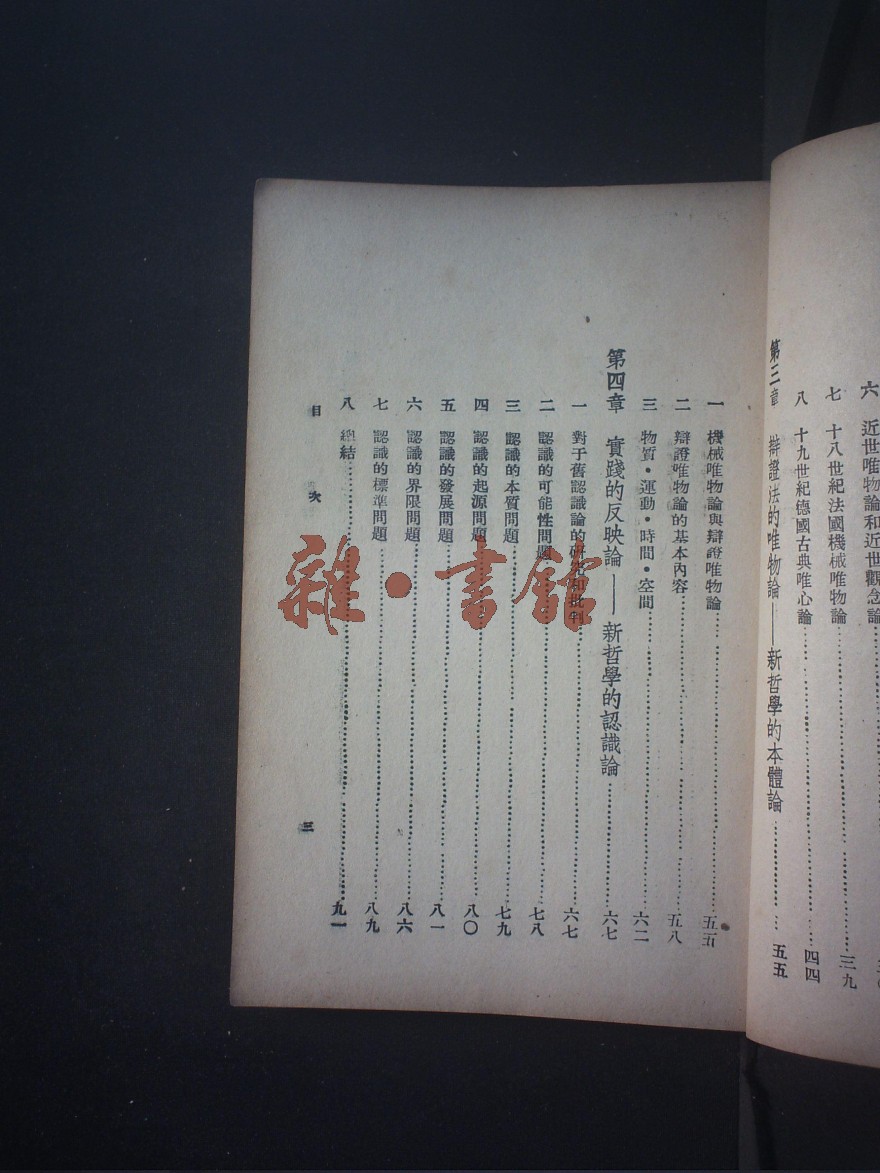 六 近世唯物論和近世觀念論
七 十八世紀法國機械唯物論……三九
八 十九世紀德國古典唯心論……四四
第三章 辯證法的唯物論——新哲學的本體論……五五
一 機械唯物論與辯證唯物論……五五
二 辯證唯物論的基本內容……五八
三 物質·運動·時間·空間……六二
第四章 實踐的反映論——新哲學的認識論……六七
一 對于舊認識論的研究和批判……六七
二 認識的可能性問題……七八
三 認識的本質問題……七九
四 認識的起源問題……八〇
五 認識的發展問題……八一
六 認識的界限問題……八六
七 認識的標準問題……八九
八 總結……九一
目次 三
雜·書館